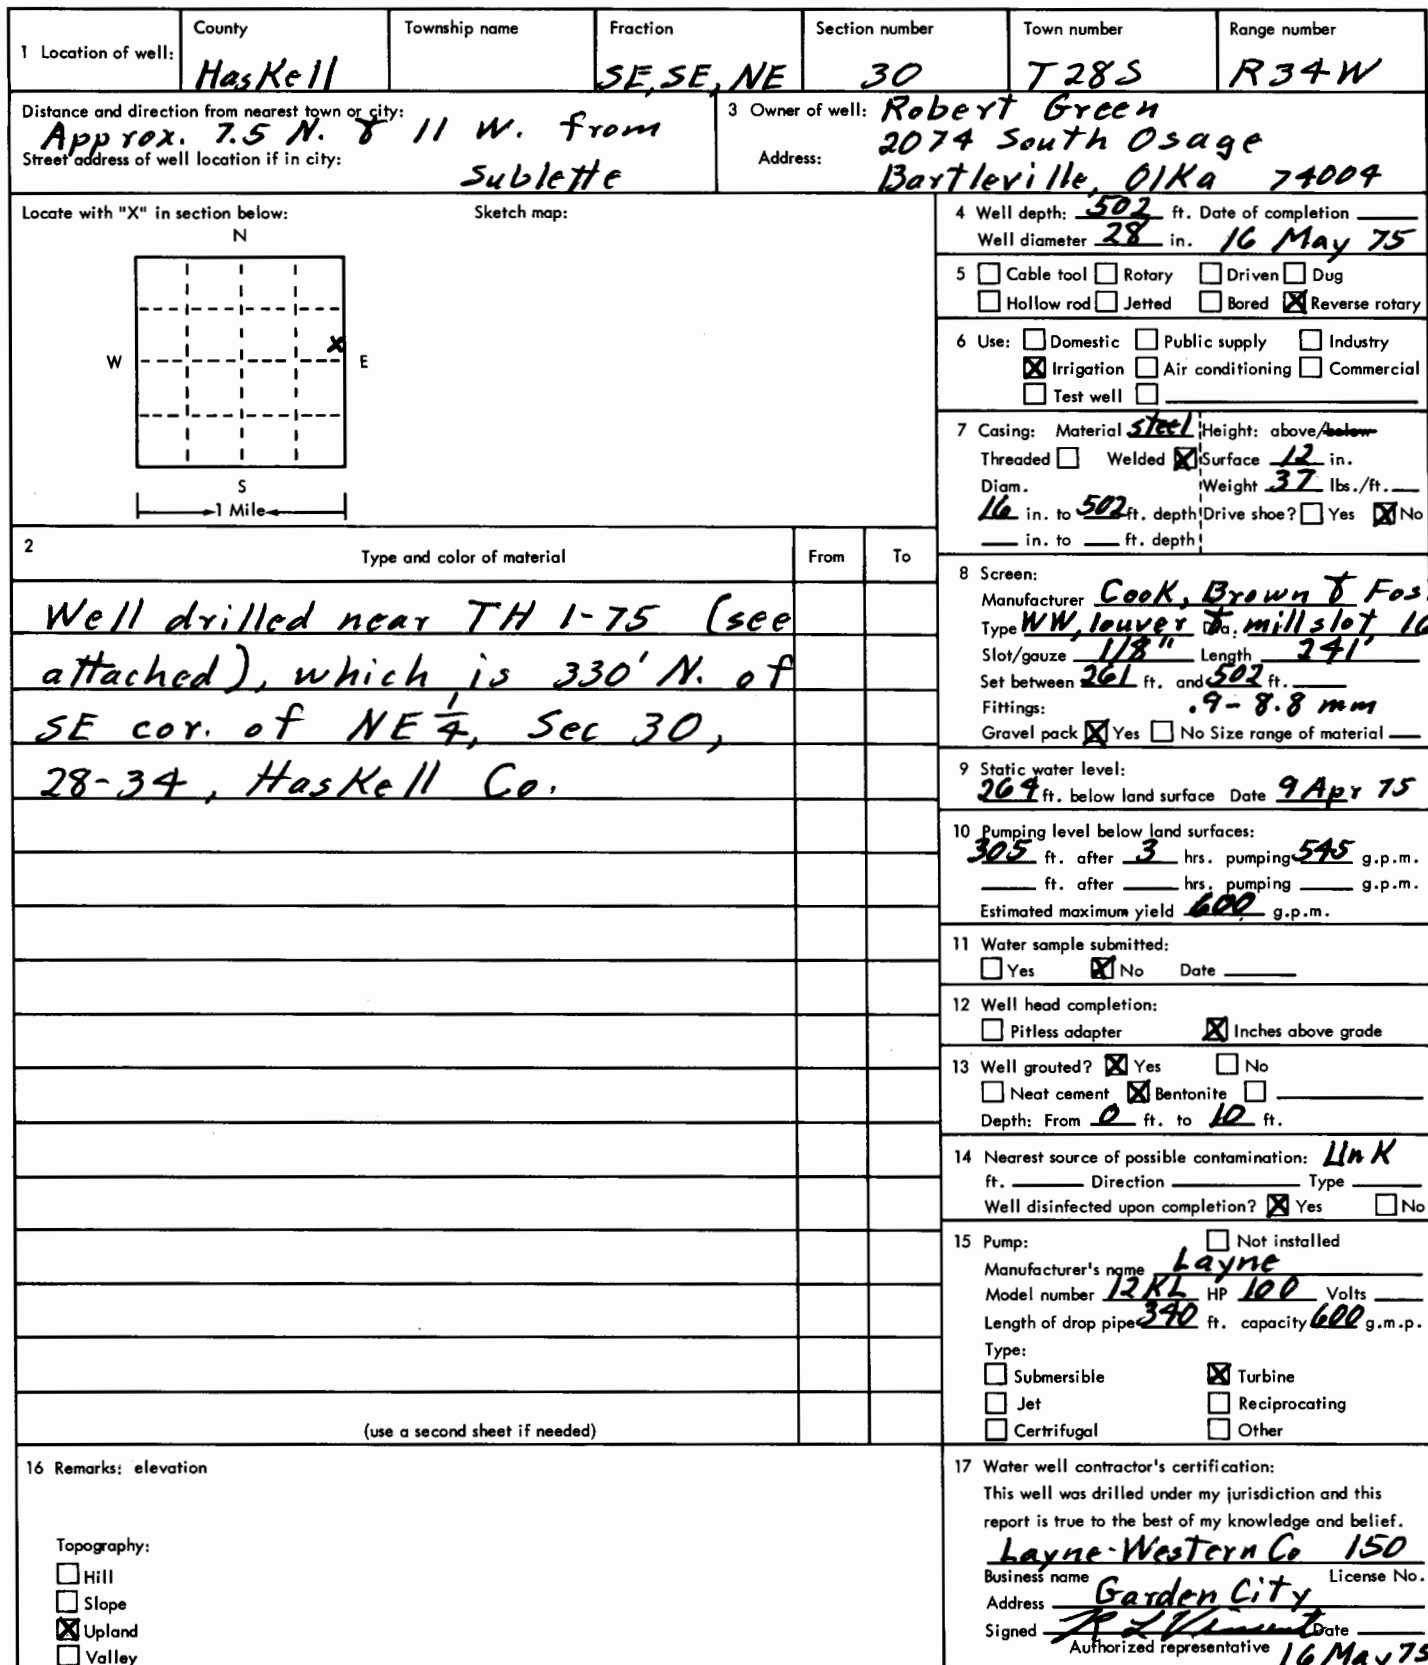 1 Location of well:
County
HasKell
Township name
Fraction
SE, SE, NE
Section number
30
Town number
T 28S
Range number
R34W
Distance and direction from nearest town or city:
Approx. 7.5 N. & 11 W. from
Street address of well location if in city:
Sublette
3 Owner of well: Robert Green
2074 South Osage
Address:
Bartleville, Olka 74004
Locate with "X" in section below:
Sketch map:
N
X
W
E
S
1 Mile
4 Well depth: 502 ft. Date of completion
Well diameter 28 in. 16 May 75
5 Cable tool Rotary Driven Dug
Hollow rod Jetted Bored X Reverse rotary
6 Use: Domestic Public supply Industry
X Irrigation Air conditioning Commercial
Test well
7 Casing: Material steel Height: above/below
Threaded Welded X Surface 12 in.
Diam. Weight 37 lbs./ft.
16 in. to 502 ft. depth Drive shoe? Yes X No
in. to ft. depth
2
Type and color of material
From
To
Well drilled near TH 1-75 (see
attached), which is 330' N. of
SE cor. of NE 1/4, Sec 30,
28-34, HasKell Co.
(use a second sheet if needed)
8 Screen:
Manufacturer Cook, Brown & Fos
Type WW, louver & Dia. millslot 16
Slot/gauze 1/8" Length 241'
Set between 261 ft. and 502 ft.
Fittings: .9 - 8.8 mm
Gravel pack X Yes No Size range of material
9 Static water level:
264 ft. below land surface Date 9 Apr 75
10 Pumping level below land surfaces:
305 ft. after 3 hrs. pumping 545 g.p.m.
ft. after hrs. pumping g.p.m.
Estimated maximum yield 600 g.p.m.
11 Water sample submitted:
Yes X No Date
12 Well head completion:
Pitless adapter X Inches above grade
13 Well grouted? X Yes No
Neat cement X Bentonite
Depth: From 0 ft. to 10 ft.
14 Nearest source of possible contamination: UnK
ft. Direction Type
Well disinfected upon completion? X Yes No
15 Pump: Not installed
Manufacturer's name Layne
Model number 12KL HP 100 Volts
Length of drop pipe 340 ft. capacity 600 g.m.p.
Type:
Submersible X Turbine
Jet Reciprocating
Certrifugal Other
16 Remarks: elevation
Topography:
Hill
Slope
X Upland
Valley
17 Water well contractor's certification:
This well was drilled under my jurisdiction and this
report is true to the best of my knowledge and belief.
Layne-Western Co 150
Business name License No.
Address Garden City
Signed R L Vincent Date
Authorized representative 16 May 75